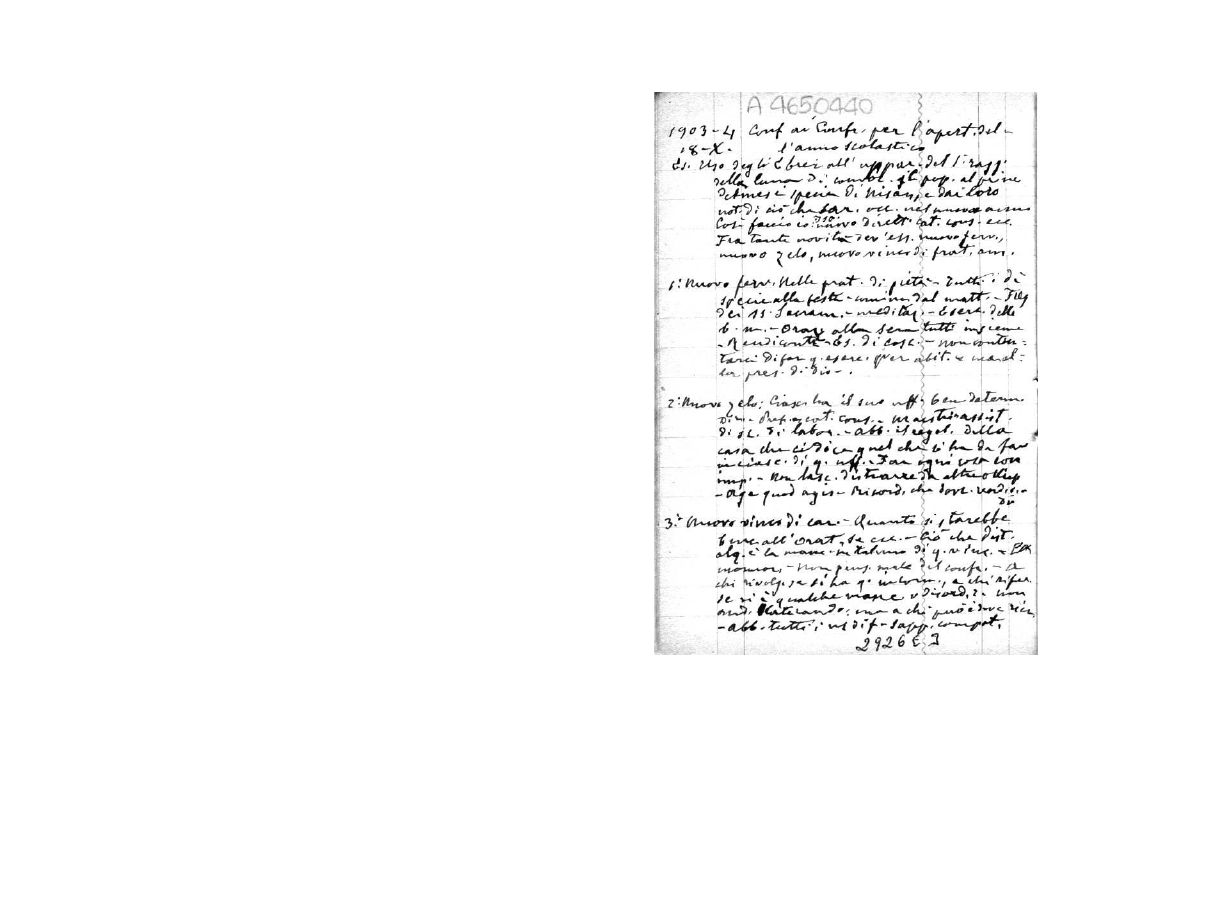 A 4650440
1903-4 Conf ai Confr. per l'apert. del-
18-X. l'anno scolastico
Es. Uso degli Ebrei all' appar. del 1° raggi
della luna di conbl. il pop. al princ
del mese specie di Nisan, e dai loro
not. di ciò che far. occ. nel nuovo anno
Così faccio io: nuovo dirett. cat. cons. ecc.
Fra tante novità dev'ess. nuovo ferv.,
nuovo zelo, nuovo vinco di frat. am.
1: Nuovo ferv. Nelle prat. di pietà - Tutti i dì
specie alla feste - comin. dal matt. -
dei SS. Sacram. - meditaz. - Eserc. della
b. m. - Oraz alla sera tutti insieme
- Rendiconti - Es. di cosc. - non conten=
tarci di far q. eserc. per abit. e
la pres. di Dio - .
2: Nuovo zelo: Ciasc. ha il suo uff. ben determ.
Dir. - Pref. cat. cons. - maestri assist.
di sc. di labor. - abb. il regol. della
casa che ci dice quel che si ha da far
in ciasc. di q. uff. - Far ogni cosa con
imp. - Non lasc. distrarre da altre
- Age quod agis - Ricord. che dovr.
3: Nuovo vinco di car. - Quanto si starebbe
bene all' Orat. se ecc. - Ciò che dist.
alq. è la manc. di q. vinc. -
mormor. - Non pens. male del confr. - A
chi rivolg. se si ha q. inform., a chi rifer.
se vi è qualche o disord.? - non
and. ma a chi può e dove
- abb. tutti i ns dif - sapp. compat.
2926 E 3